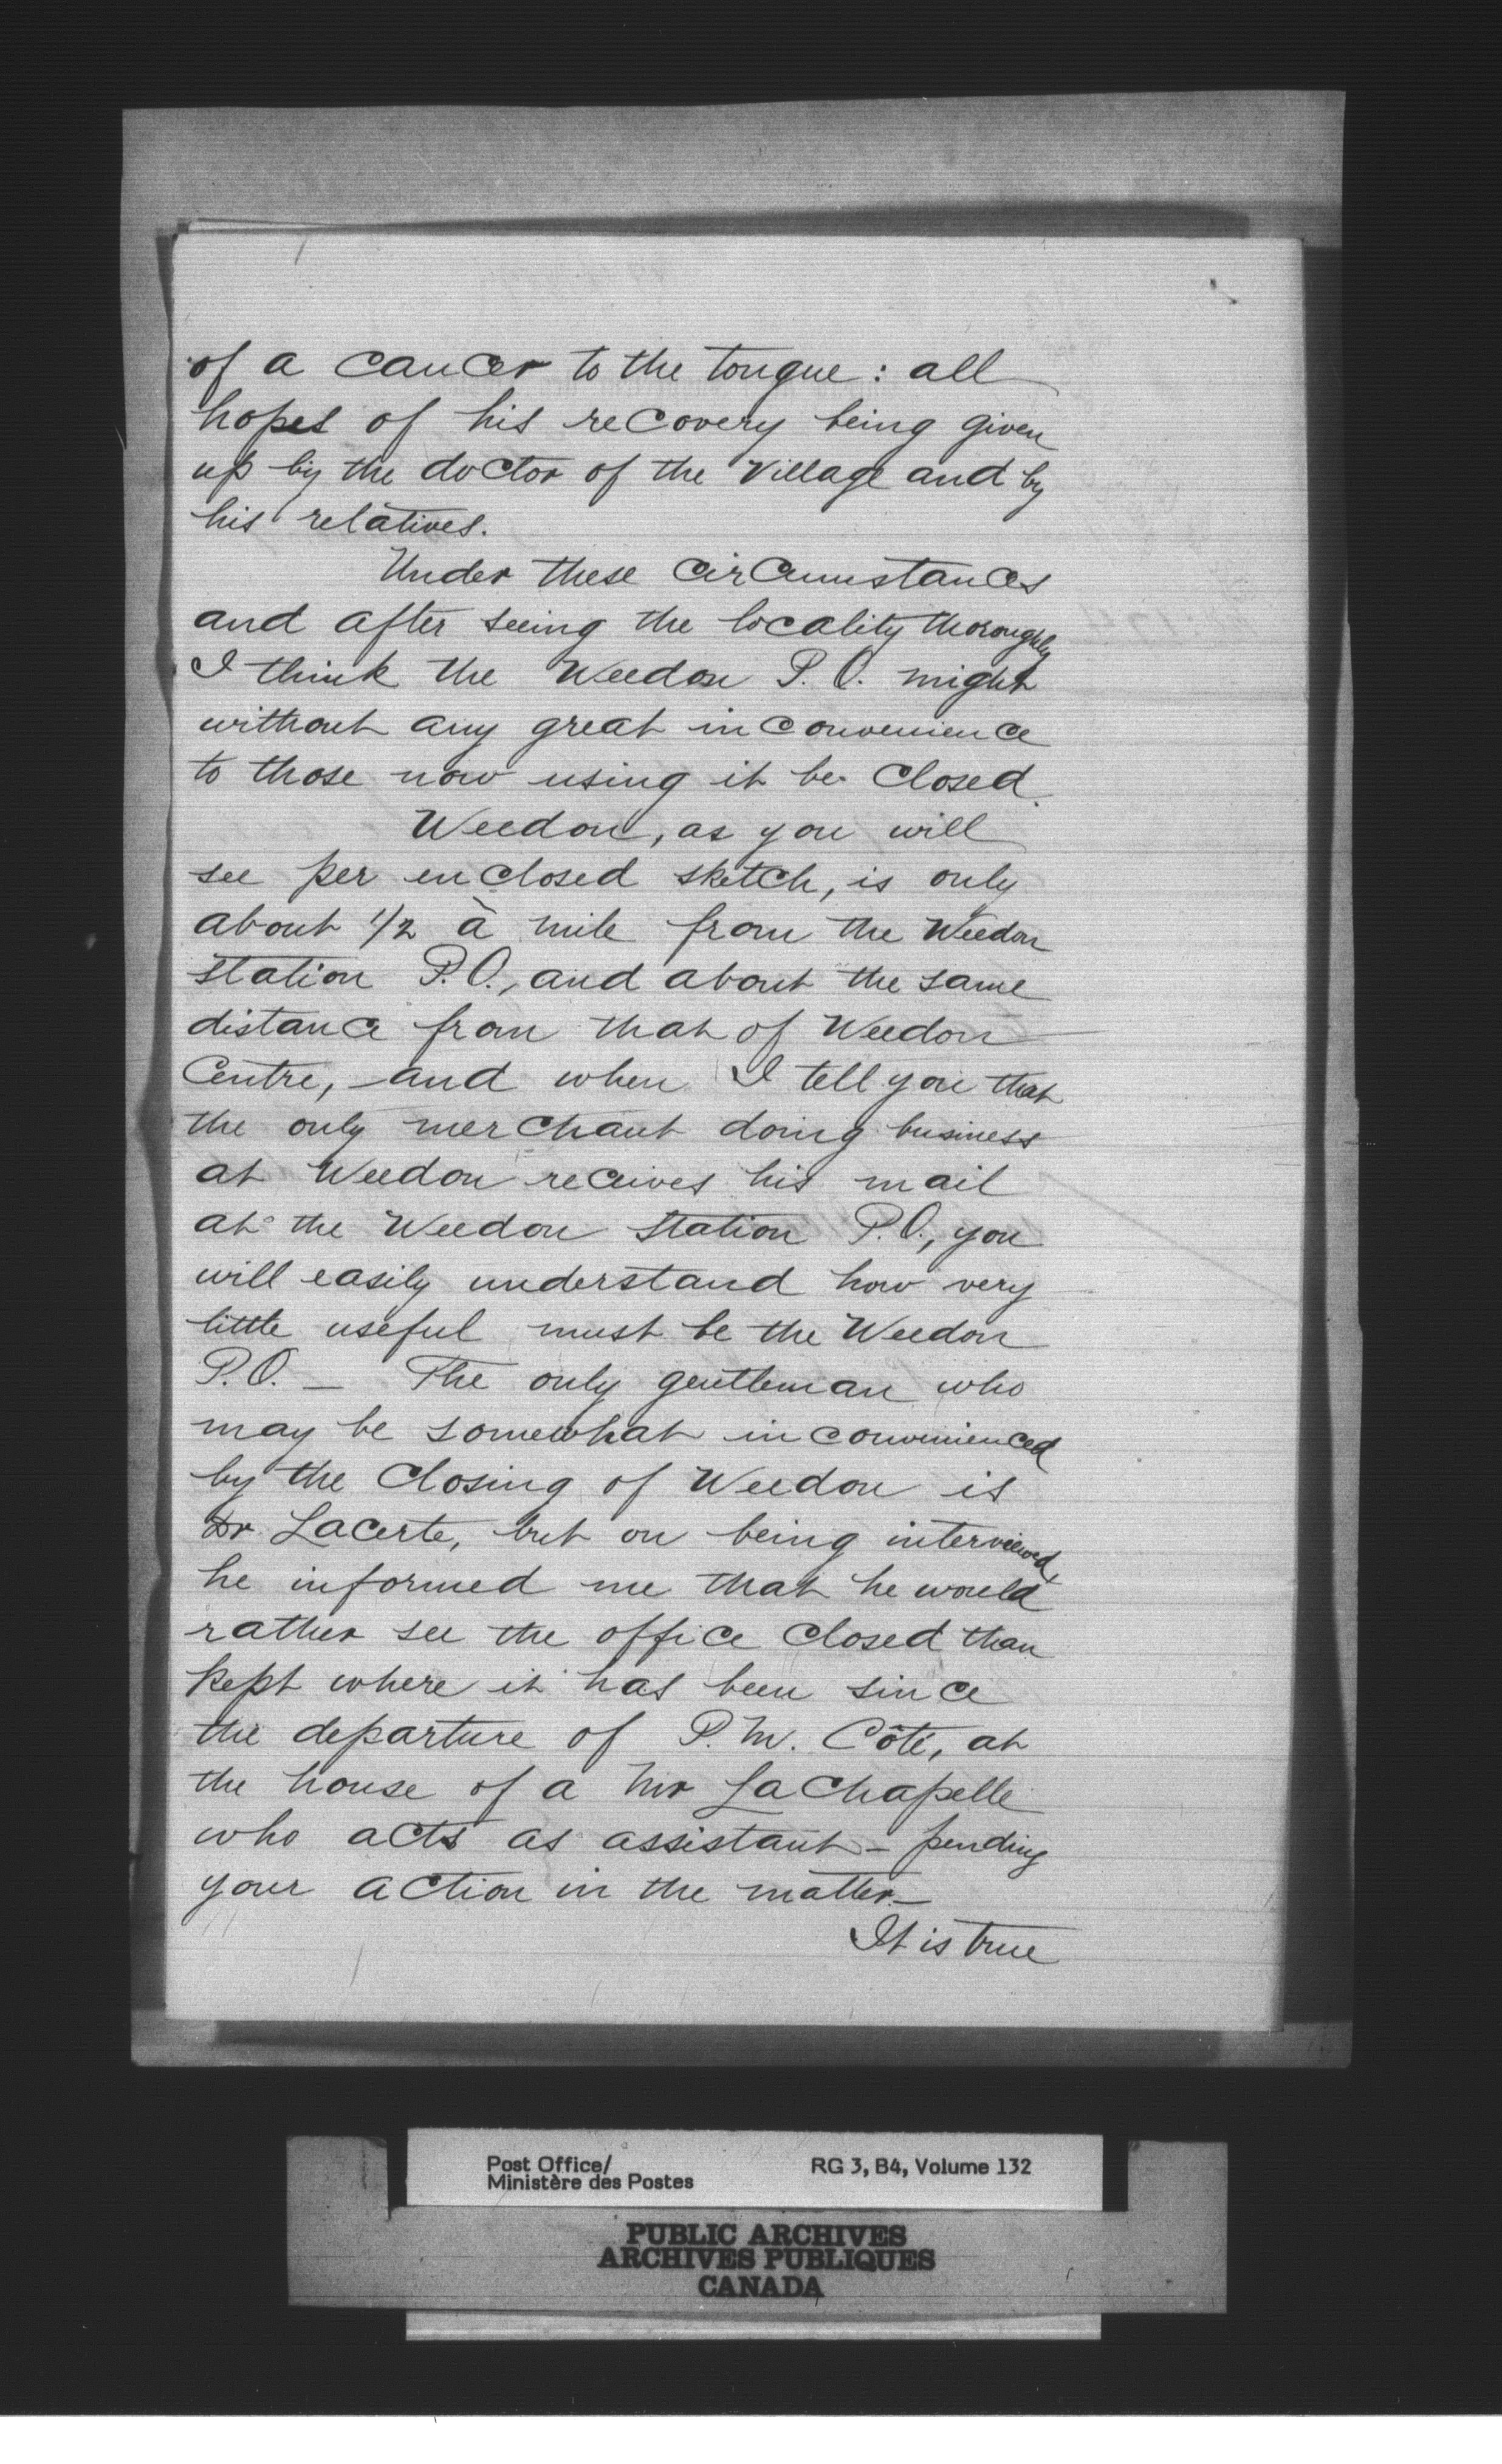 of a cancer to the tongue: all
hopes of his recovery being given
up by the doctor of the village and by
his relatives.
Under these circumstances
and after seeing the locality thoroughly
I think the Weedon P.O. might
without any great inconvenience
to those now using it be closed.
Weedon, as you will
see per enclosed sketch, is only
about 1/2 à mile from the Weedon
Station P.O., and about the same
distance from that of Weedon
Centre, and when I tell you that
the only merchant doing business
at Weedon receives his mail
at the Weedon Station P.O., you
will easily understand how very
little useful must be the Weedon
P.O. — The only gentleman who
may be somewhat inconvenienced
by the closing of Weedon is
Dr. Lacerte, but on being interviewed,
he informed me that he would
rather see the office closed than
kept where it has been since
the departure of P.M. Côté, at
the house of a Mr LaChapelle
who acts as assistant — pending
your action in the matter. —
It is true
Post Office/ RG 3, B4, Volume 132
Ministère des Postes
PUBLIC ARCHIVES
ARCHIVES PUBLIQUES
CANADA